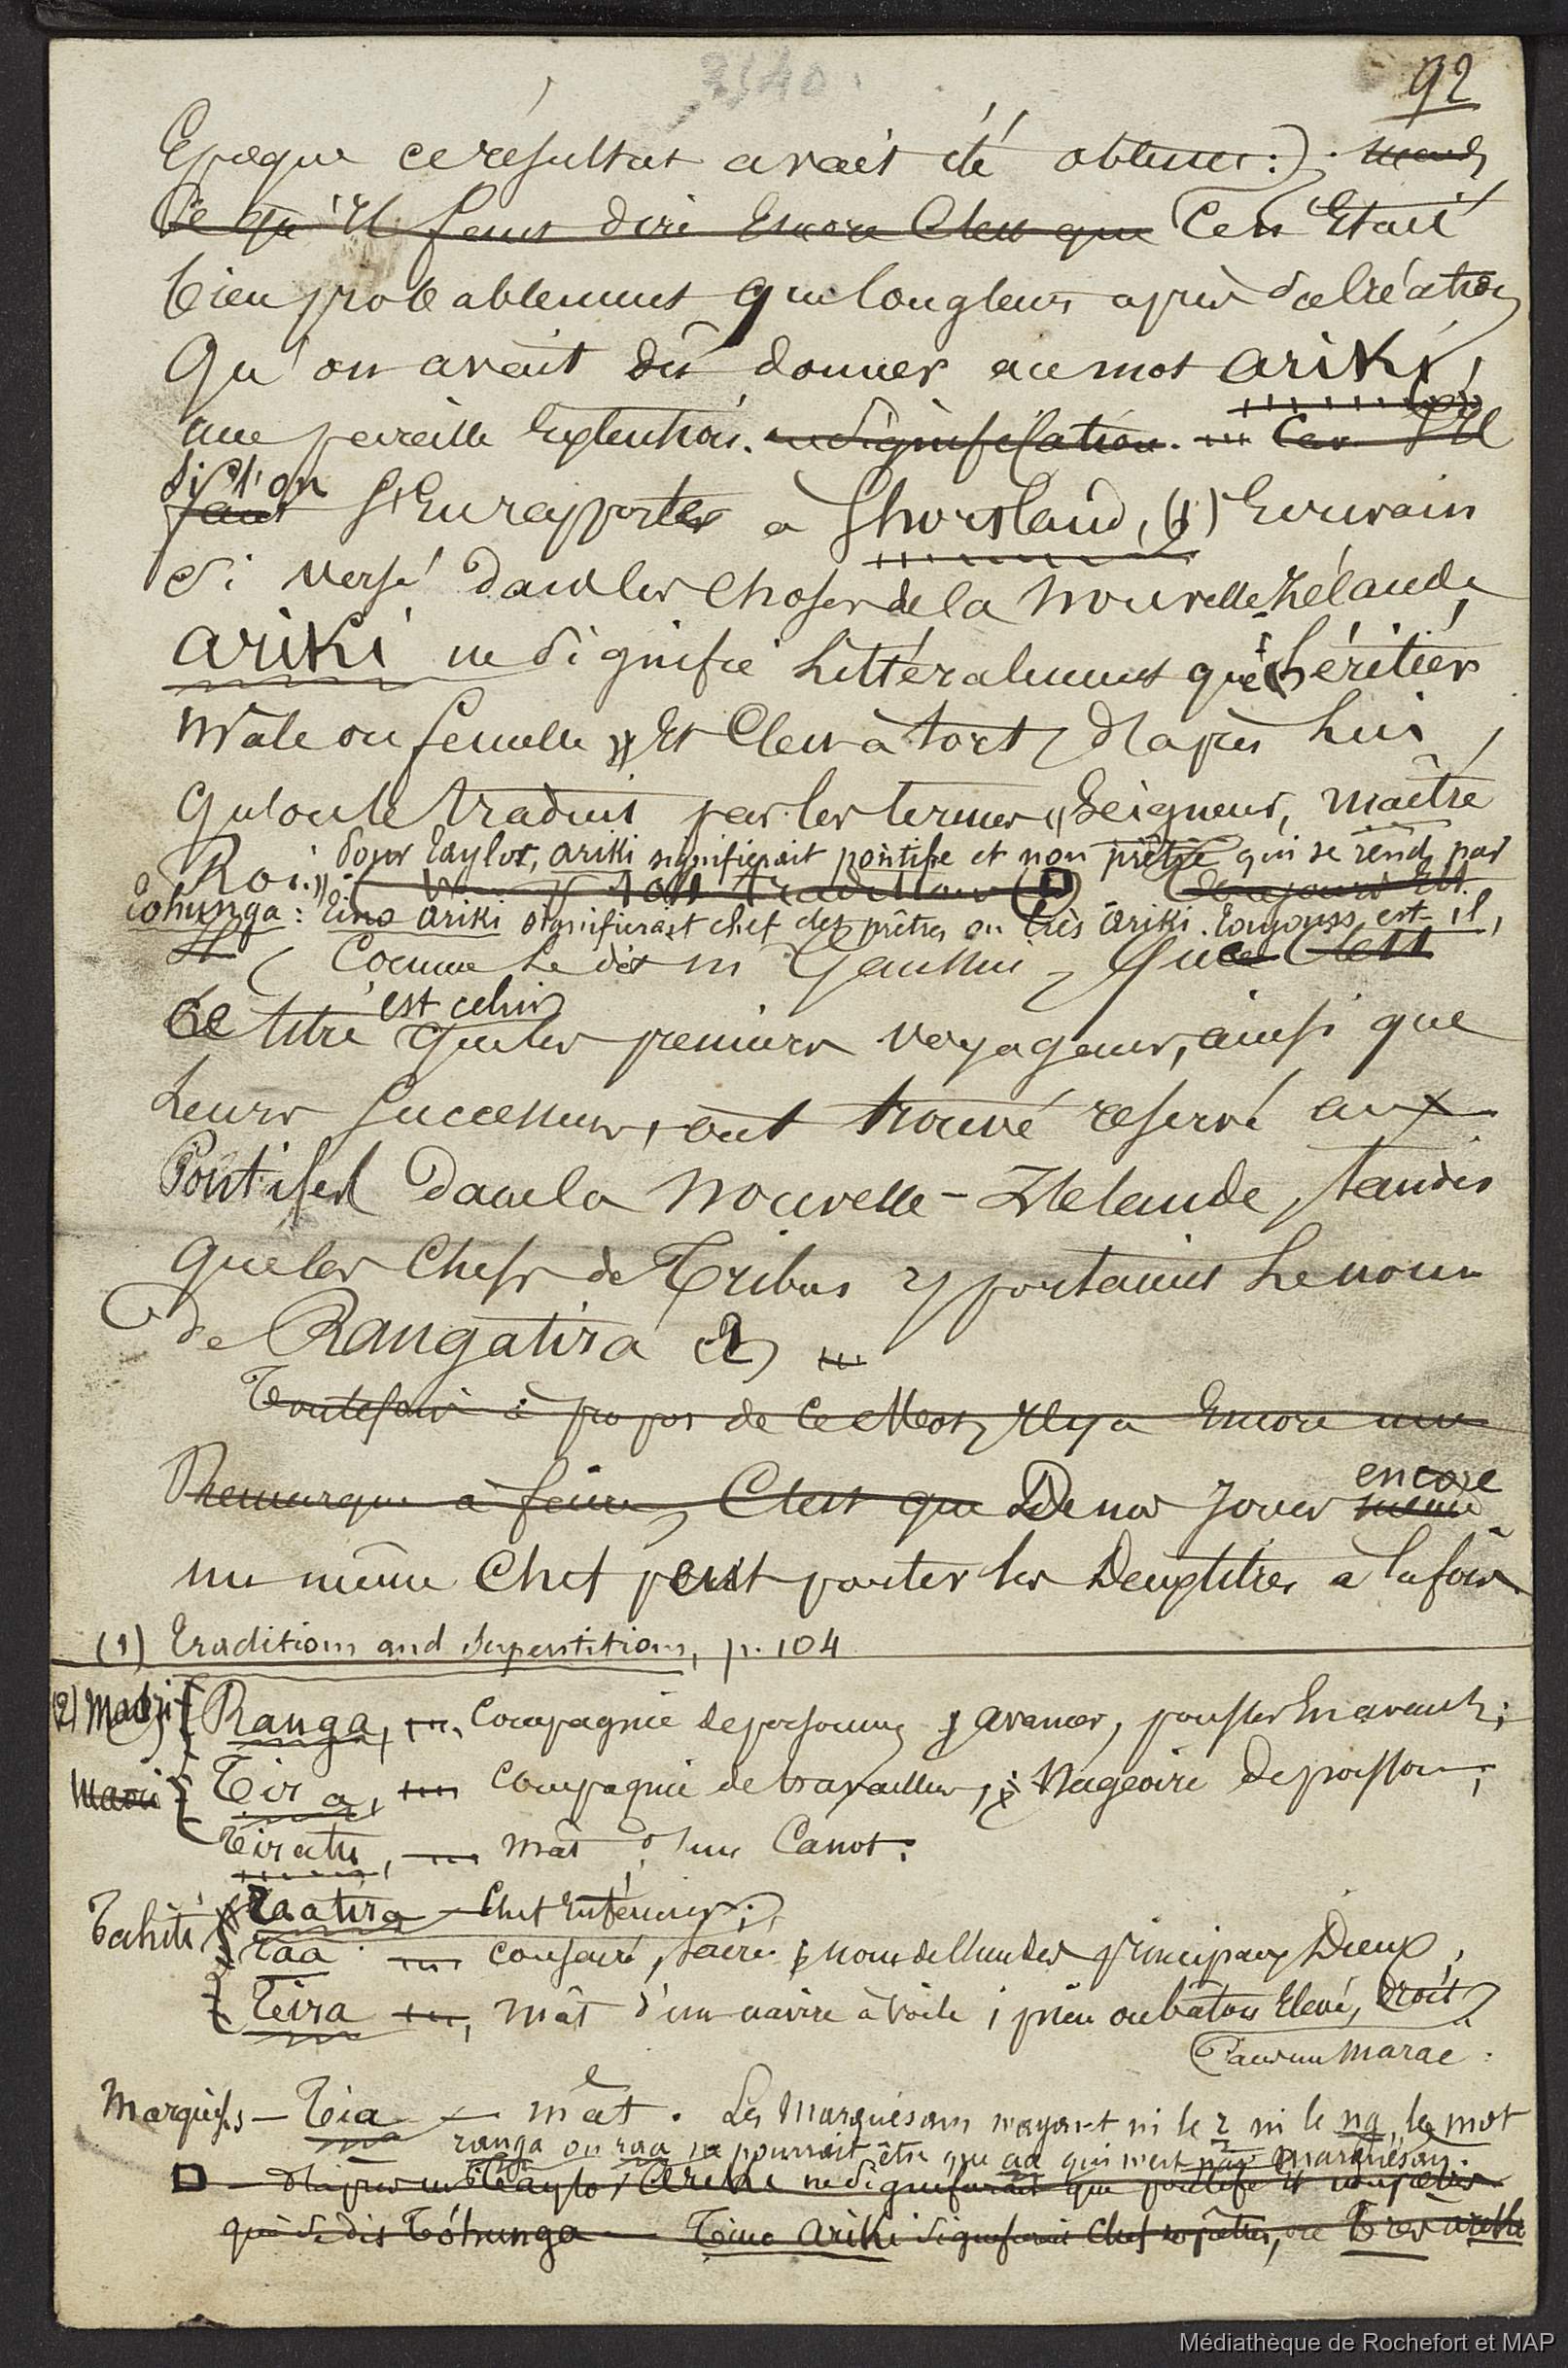 3540.
92
Epoque ce résultat avait été obtenu:).
Ce qu'il faut dire Encore C'est que Ce n'Etait
bien probablement que longtems après sa création
Qu'on avait dû donner au mot ariki,
une pareille Extention. signification. Car s'Il
si l'on
faut s'En rapporter à Shortland, (1) Ecrivain
si versé dans les choses de la Nouvelle Zélande,
ariki ne signifie Littéralement que héritier
Mâle ou femelle Et C'est à tort, d'après Lui,
Qu'on le traduit par les termes Seigneur, maître
Pour Taylor, ariki signifierait pontife et non prêtre qui se rend par
Roi.
Tohunga: Tino ariki signifierait chef des prêtres ou très ariki. Toujours est-il,
Comme Le dit M Gaussin, Que C'est
est celui
Ce titre que les premiers voyageurs, ainsi que
Leurs Successeurs, ont trouvé reservé aux
Pontifes dans la Nouvelle-Zélande, tandis
que les Chefs de Tribus y portaient Le nom
de Rangatira (2)
Toutefois à propos de Ce Mot, Il y a Encore une
encore
Remarque à faire, C'est que De nos Jours même
un même Chef peut porter les Deux titres a la fois.
(1) Traditions and Superstitions, p. 104
(2) Maori { Ranga, Compagnie de personnes; avancer, pousser En avant;
Maori { Tira, Compagnie de travailleurs; Nageoire de poisson;
Tiratu, mât d'un Canot.
Raatira Chef Inférieur;
Tahiti { raa consacré, sacré; nom de l'un des principaux Dieux;
{ Tira, mât d'un navire à voile; pieu ou bâton Elevé, droit
Dans un Marae.
Marquises - Tia - mât. Les Marquésans n'ayant ni le r ni le ng, le mot
ranga ou raa ne pourrait être que aa qui n'est pas Marquésan.
D'après M Taylor, Ariki ne signifierait que pontife et non prêtre
qui se dit Tóhunga Tino Ariki signifierait Chef des prêtres, ou Très ariki
Médiathèque de Rochefort et MAP